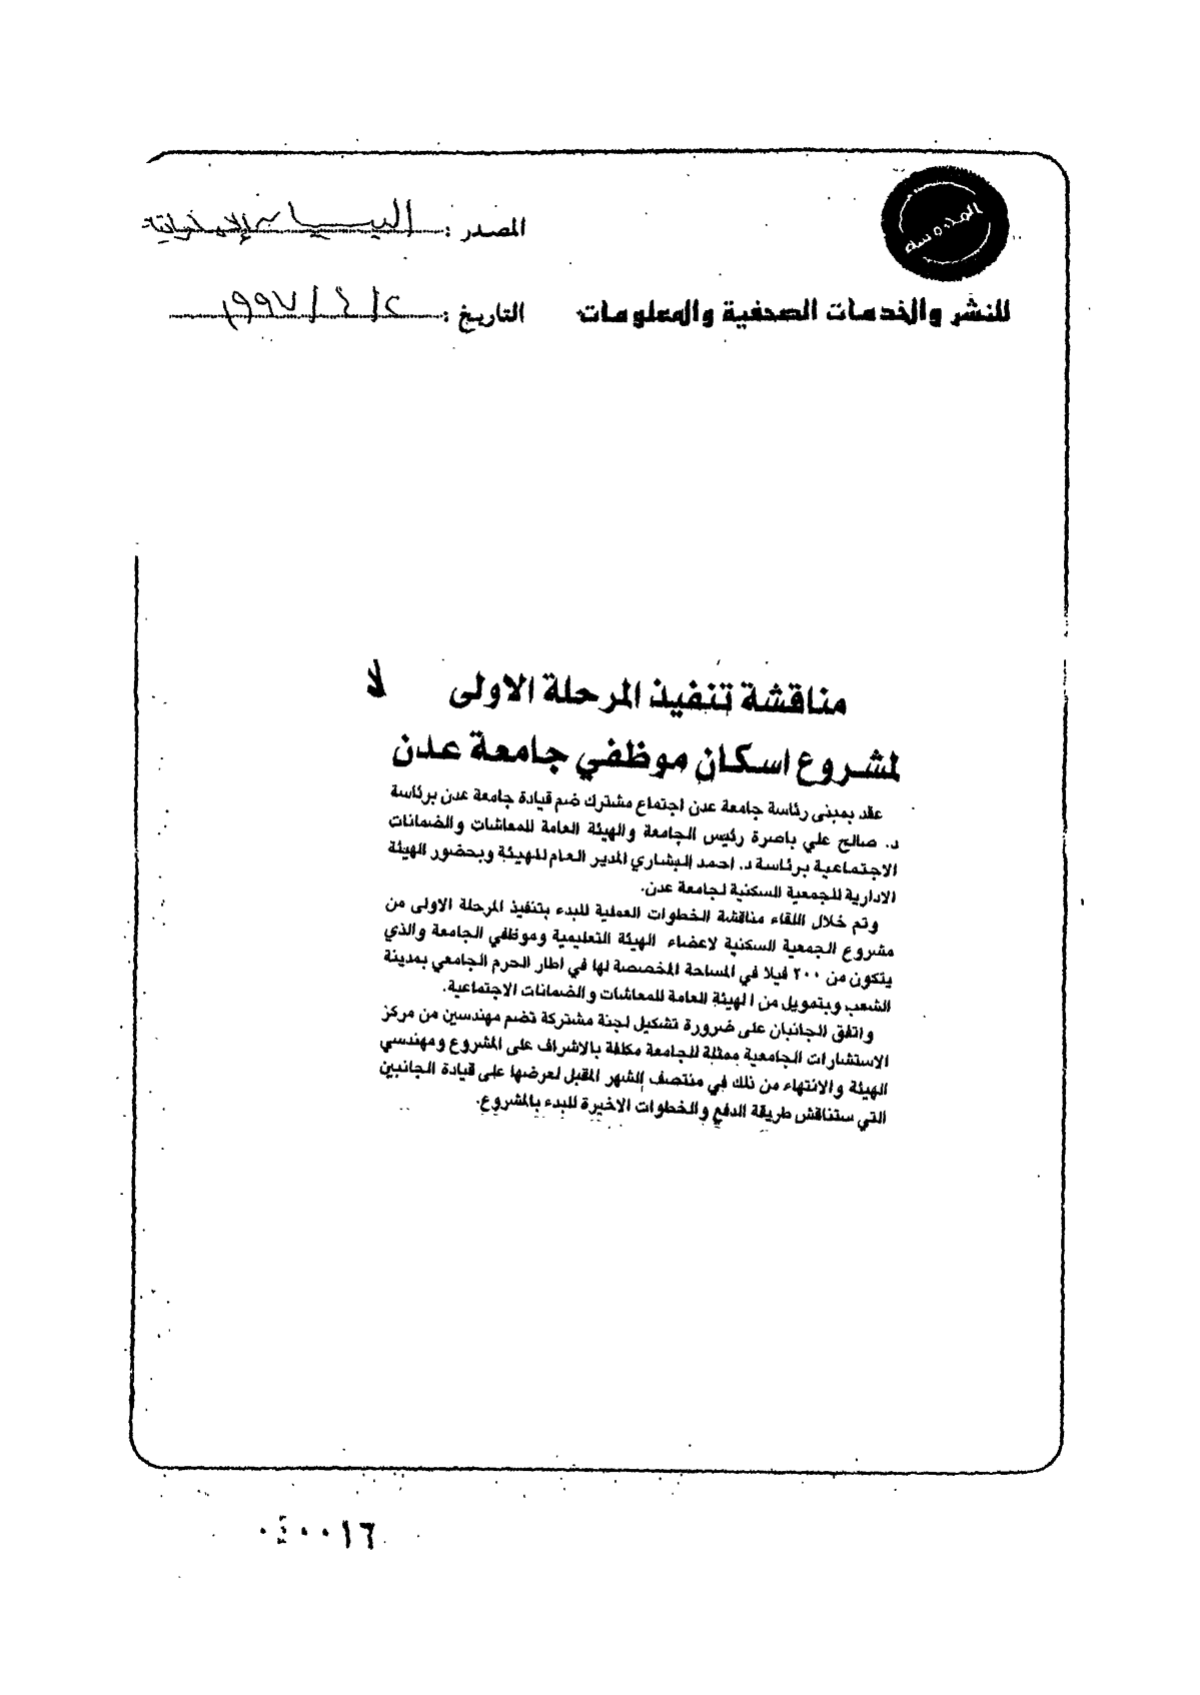 المصدر :
التاريخ : ٢ / ٤ / ١٩٩٧
للنشر والخدمات الصحفية والمعلومات
مناقشة تنفيذ المرحلة الاولى
لا
لمشروع اسكان موظفي جامعة عدن
عقد بمبنى رئاسة جامعة عدن اجتماع مشترك ضم قيادة جامعة عدن برئاسة
د. صالح علي باصرة رئيس الجامعة والهيئة العامة للمعاشات والضمانات
الاجتماعية برئاسة د. احمد البشاري المدير العام للهيئة وبحضور الهيئة
الادارية للجمعية السكنية لجامعة عدن.
وتم خلال اللقاء مناقشة الخطوات العملية للبدء بتنفيذ المرحلة الاولى من
مشروع الجمعية السكنية لاعضاء الهيئة التعليمية وموظفي الجامعة والذي
يتكون من ٢٠٠ فيلا في المساحة المخصصة لها في اطار الحرم الجامعي بمدينة
الشعب وبتمويل من الهيئة العامة للمعاشات والضمانات الاجتماعية.
واتفق الجانبان على ضرورة تشكيل لجنة مشتركة تضم مهندسين من مركز
الاستشارات الجامعية ممثلة للجامعة مكلفة بالاشراف على المشروع ومهندسي
الهيئة والانتهاء من ذلك في منتصف الشهر المقبل لعرضها على قيادة الجانبين
التي ستناقش طريقة الدفع والخطوات الاخيرة للبدء بالمشروع.
٠٤٠٠١٦